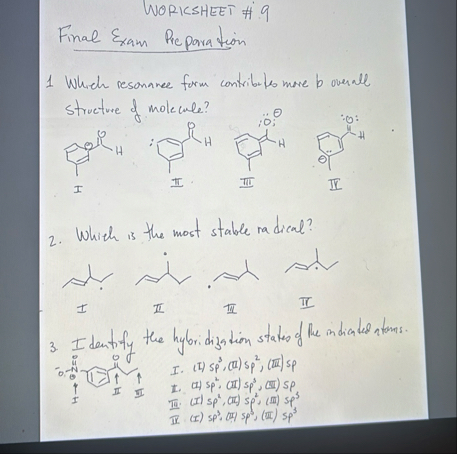 WORKSHEET # 9
Final Exam Preparation
1 Which resonance form contributes more to overall
structure of molecule?
H H H H
I II III IV
2. Which is the most stable radical?
I II III IV
3. Identify the hybridization states of the indicated atoms.
I. (I) sp³, (II) sp², (III) sp
II. (I) sp², (II) sp³, (III) sp
III. (I) sp², (II) sp², (III) sp³
IV. (I) sp³, (II) sp², (III) sp³
I II III